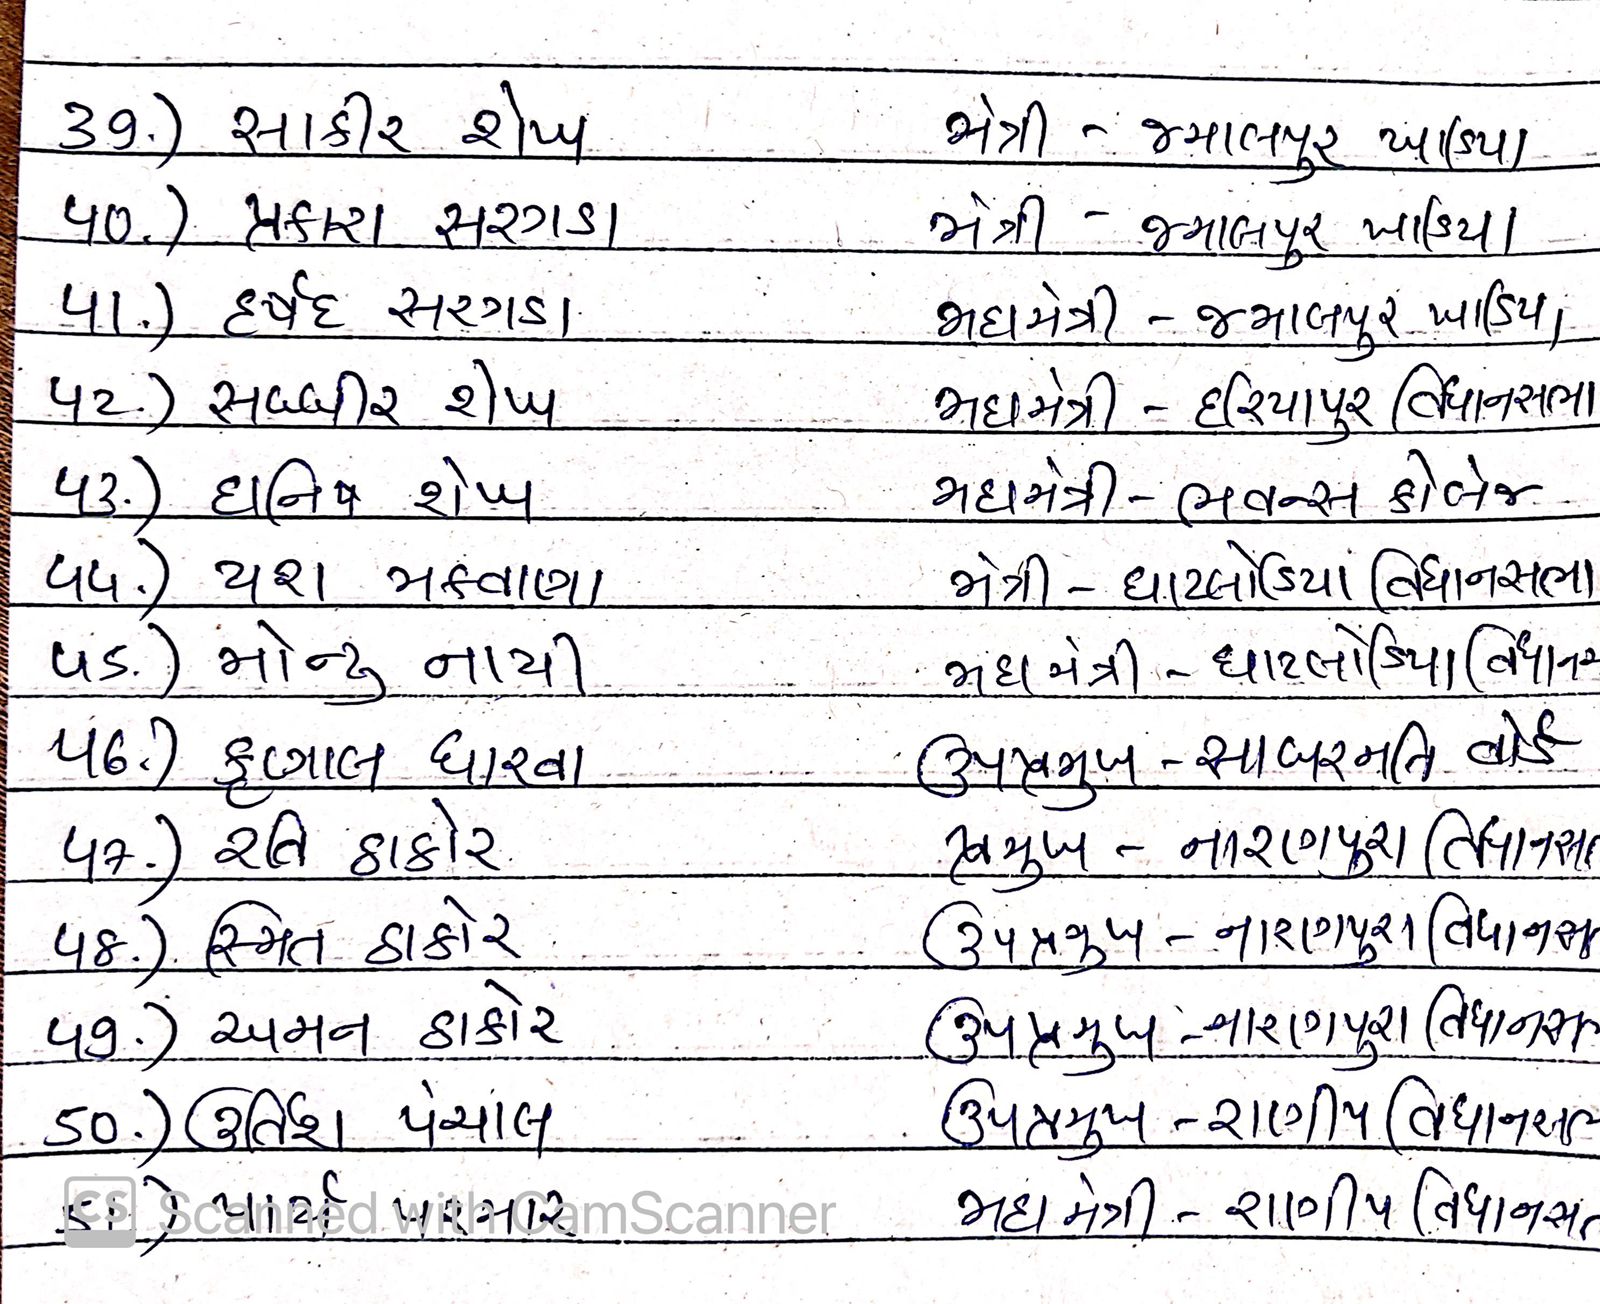 39.) સાકીર શેખ મંત્રી - જમાલપુર ખાડિયા
40.) પ્રકાશ સરગડા મંત્રી - જમાલપુર ખાડિયા
41.) હર્ષદ સરગડા મહામંત્રી - જમાલપુર ખાડિયા
42.) સબ્બીર શેખ મહામંત્રી - દરિયાપુર વિધાનસભા
43.) દાનિષ શેખ મહામંત્રી - ભવન્સ કોલેજ
44.) યશ મકવાણા મંત્રી - ઘાટલોડિયા વિધાનસભા
45.) મોન્ટુ નાયી મહામંત્રી - ઘાટલોડિયા વિધાનસ
46.) કૃણાલ ધારવા ઉપપ્રમુખ - સાબરમતિ વોર્ડ
47.) રવિ ઠાકોર પ્રમુખ - નારાણપુરા વિધાનસભ
48.) સ્મિત ઠાકોર ઉપપ્રમુખ - નારાણપુરા વિધાનસભ
49.) અમન ઠાકોર ઉપપ્રમુખ - નારાણપુરા વિધાનસભ
50.) પંચાલ ઉપપ્રમુખ - રાણીપ વિધાનસભ
51.) પાર્થ પરમાર મહામંત્રી - રાણીપ વિધાનસભ
CS Scanned with CamScanner